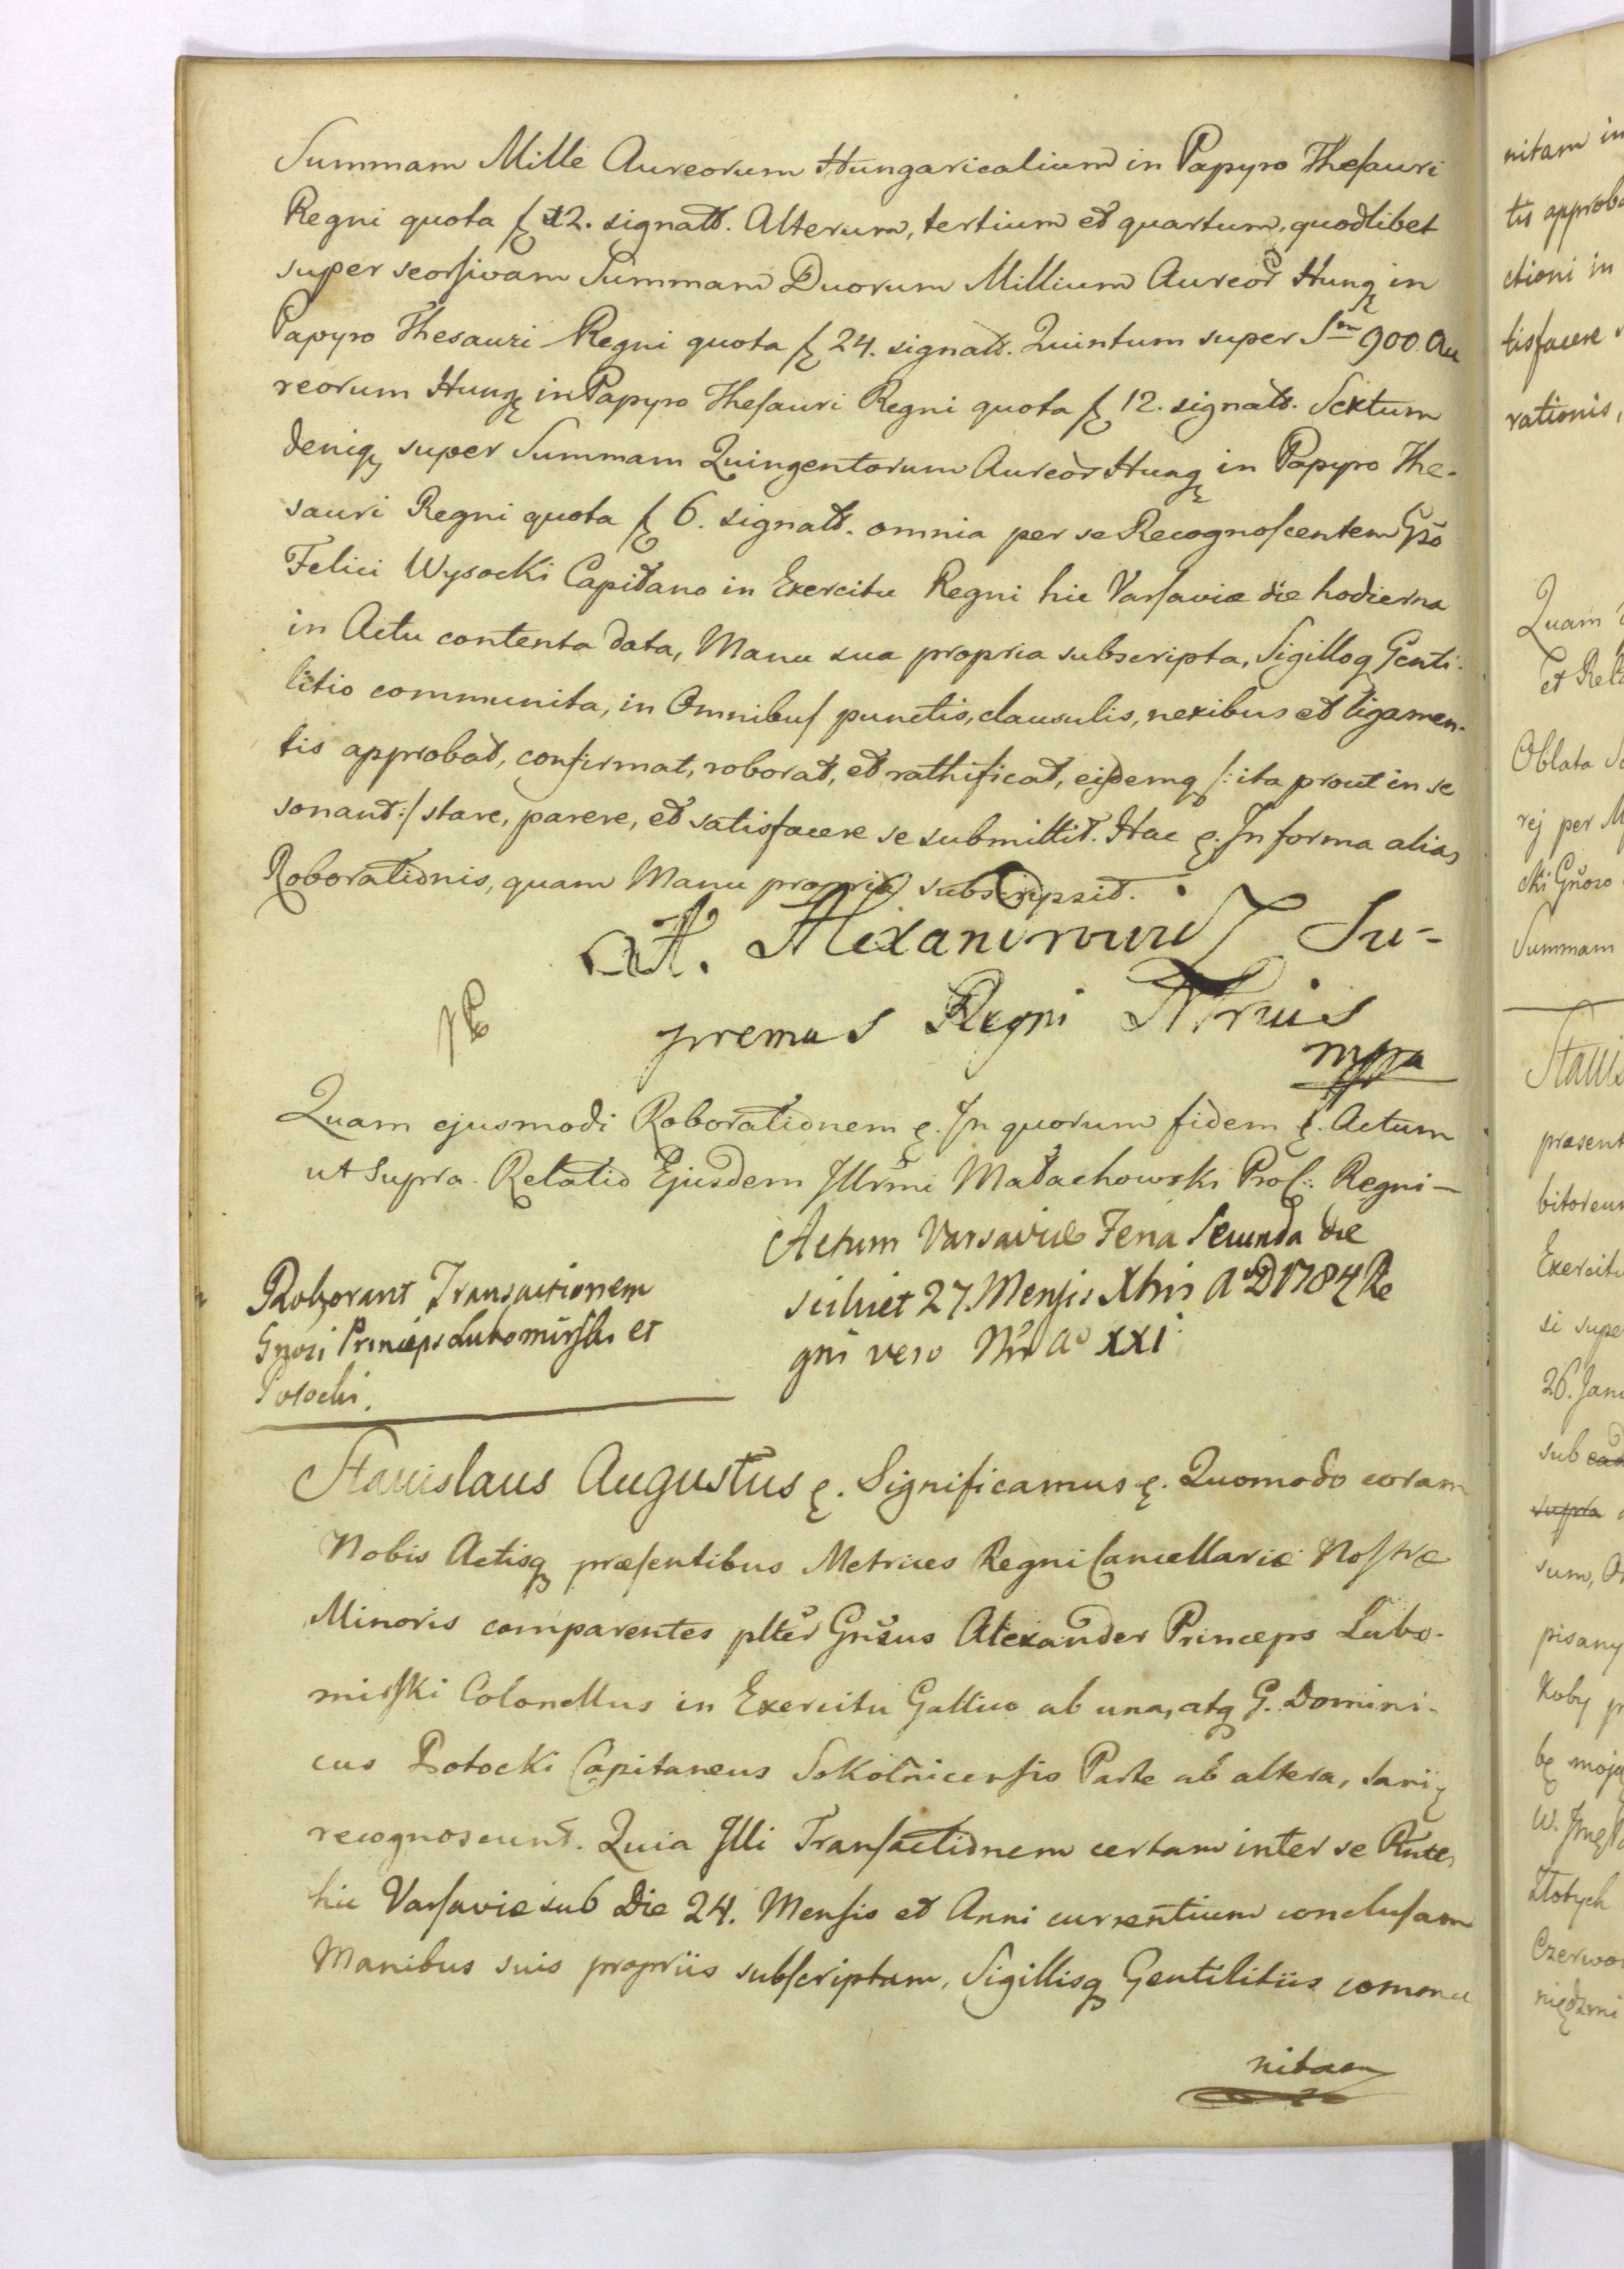 Summam Mille Aureorum Hungaricalium in Papyro Thesauri
Regni quota f 12. signatt. Alterum, tertium et quartum, quodlibet
super seorsivam Summam Duorum Millium Aureor Hung in
Papyro Thesauri Regni quota f 24. signatt. Quintum super Sm 900. Au
reorum Hung in Papyro Thesauri Regni quota f 12. signatt. Sextum
deniq super Summam Quingentorum Aureor Hung in Papyro The-
sauri Regni quota f 6. signatt. omnia per se Recognoscentem Gso
Felici Wysocki Capitano in Exercitu Regni hic Varsaviæ die hodierna
in Actu contenta data, Manu sua propria subscripta, Sigilloq Genti-
litio communita, in Omnibus punctis, clausulis, nexibus et ligamen-
tis approbat, confirmat, roborat, et rathificat, eisdemq /: ita prout in se
sonant :/ stare, parere, et satisfacere se submittit. Hac ę. In forma alias
Roborationis, quam Manu propria subscripsit.
A. Alexandrowicz Su-
premus Regni
mppa
Quam ejusmodi Roborationem ę. In quorum fidem ę. Actum
ut Supra. Relatio Ejusdem Illrmi Małachowski Prof: Regni —
Actum Varsaviæ Feria Secunda die
scilicet 27. Mensis Xbris A D 1784 Re
gni vero Nri Ao XXI
Roborant Transactionem
Gnosi Princeps Lubomirski et
Potocki.
Stanislaus Augustus ę. Significamus ę. Quomodo coram
Nobis Actisq præsentibus Metrices Regni Cancellariæ Nostræ
Minoris comparentes plter Gnsus Alexander Princeps Lubo-
mirski Colonellus in Exercitu Gallico ab una, atq G. Domini-
cus Potocki Capitaneus Sokolnicensis Parte ab altera, Sani ę
recognoscunt. Quia Illi Transactionem certam inter se Rntes
hic Varsaviæ sub Die 24. Mensis et Anni currentium conclusam
Manibus suis propriis subscriptam, Sigillisq Gentilitiis commu
nitam
nitam in
tis approba
ctioni in
tisfacere
rationis,
Quam
et Rela
Oblata
rej per M
cki Gnoso
Summam
Stanis
præsent
bitorum
Exercitu
si supe
26. Janu
sub
supra
sum,
pisany
Koby
bę moją
W.
Złotych
Czerwo